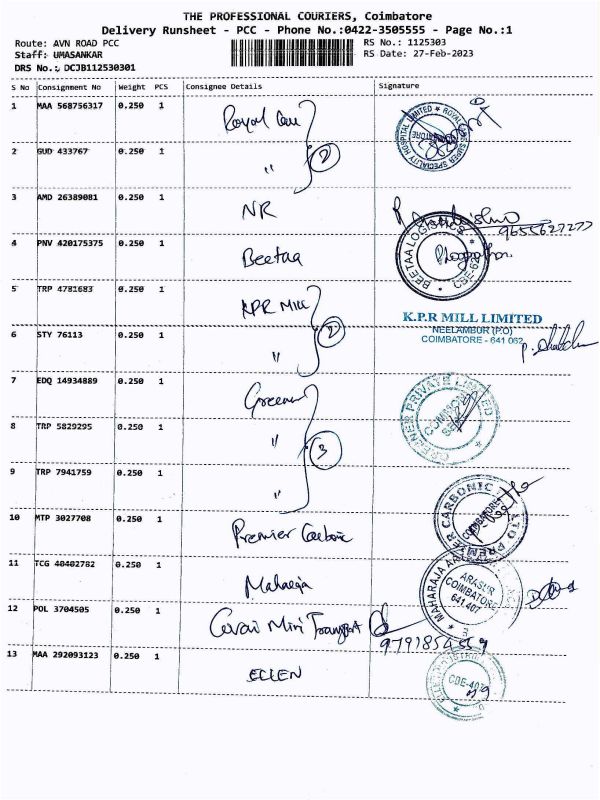 THE PROFESSIONAL COURIERS, Coimbatore
Delivery Runsheet - PCC - Phone No.:0422-3505555 - Page No.:1
Route: AVN ROAD PCC
RS No.: 1125303
Staff: UMASANKAR
RS Date: 27-Feb-2023
DRS No.: DCJB112530301
S No Consignment No Weight PCS Consignee Details Signature
1 MAA 568756317 0.250 1 Royal Care
2 GUD 433767 0.250 1 " 2
3 AMD 26389081 0.250 1 NR
9655627277
4 PNV 420175375 0.250 1 Beetaa
BEETAA LOGISTICS
5 TRP 4781683 0.250 1 KPR Mill
K.P.R MILL LIMITED
NEELAMBUR (P.O)
COIMBATORE - 641 062
6 STY 76113 0.250 1 " 2
7 EDQ 14934889 0.250 1
PRIVATE LIMITED
8 TRP 5829295 0.250 1 " 3
9 TRP 7941759 0.250 1 "
10 MTP 3027708 0.250 1 Premier Carbonic
PREMIER CARBONIC
COIMBATORE
11 TCG 40402782 0.250 1 Maharaja
MAHARAJA
ARASUR
COIMBATORE
641407
12 POL 3704505 0.250 1 Mini Transport
13 MAA 292093123 0.250 1 ELLEN